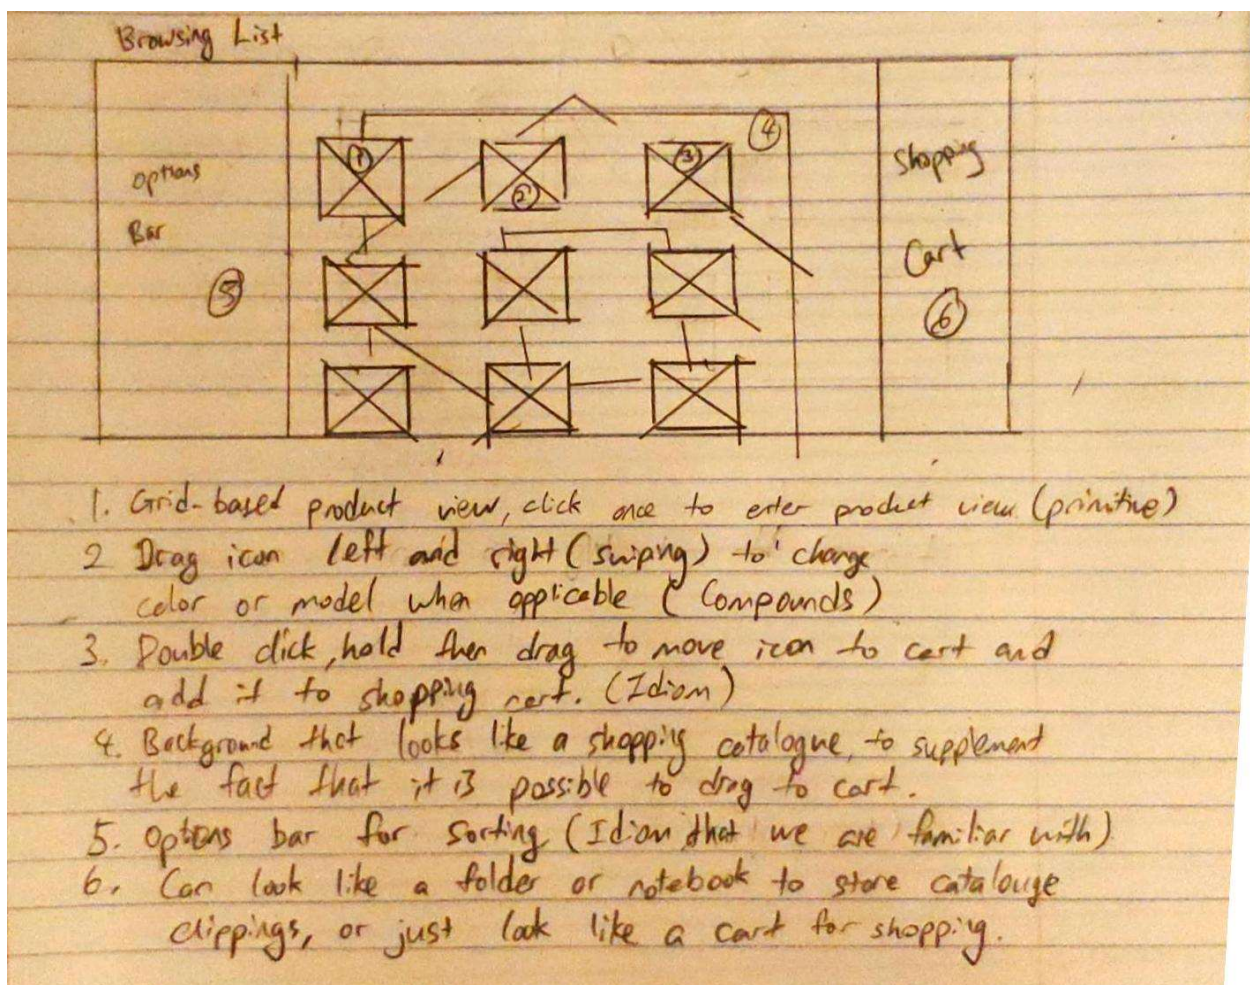 Browsing List
Options
Bar
5
1
2
3
4
Shopping
Cart
6
1. Grid-based product view, click once to enter product view (primitive)
2 Drag icon left and right (swiping) to change
color or model when applicable (Compounds)
3. Double click, hold then drag to move icon to cart and
add it to shopping cart. (Idiom)
4. Background that looks like a shopping catalogue, to supplement
the fact that it is possible to drag to cart.
5. Options bar for sorting (Idiom that we are familiar with)
6. Can look like a folder or notebook to store catalouge
clippings, or just look like a cart for shopping.